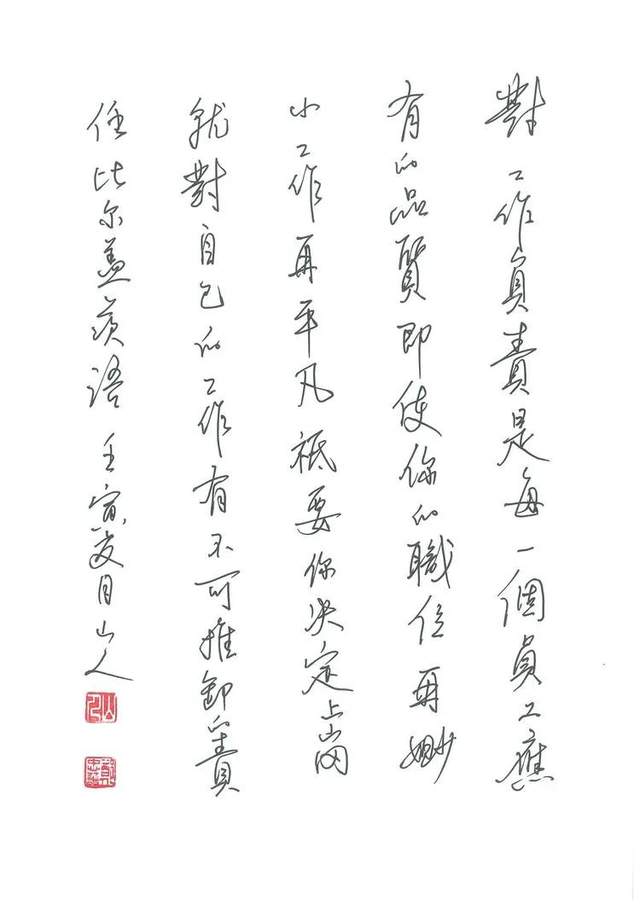 對工作負責是每一個員工應
有的品質即使你的職位再渺
小工作再平凡祇要你决定上崗
就對自己的工作有不可推卸的責
任比尔盖茨語 壬寅夏月山人